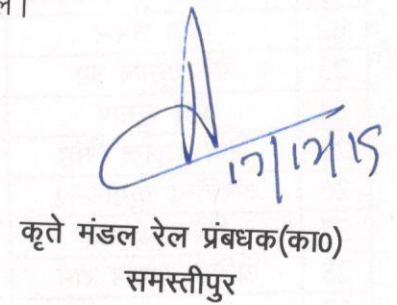 ल।
17/12/15
कृते मंडल रेल प्रंबधक(का0)
समस्तीपुर